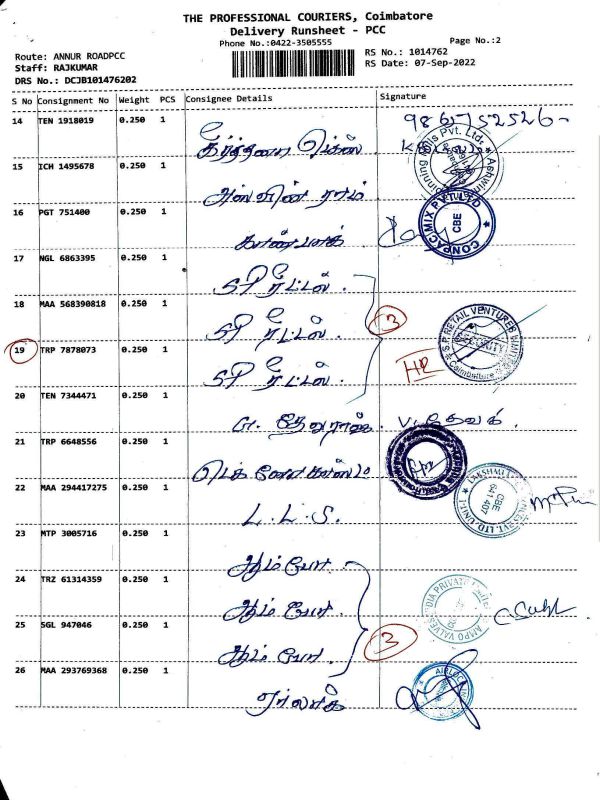 THE PROFESSIONAL COURIERS, Coimbatore
Delivery Runsheet - PCC
Phone No.:0422-3505555
Page No.:2
Route: ANNUR ROADPCC
RS No.: 1014762
Staff: RAJKUMAR
RS Date: 07-Sep-2022
DRS No.: DCJB101476202
S No Consignment No Weight PCS Consignee Details Signature
14 TEN 1918019 0.250 1
9867752526
15 ICH 1495678 0.250 1 அஸ்வின் ராம்
16 PGT 751400 0.250 1
CONPAC MIX PVT LTD CBE
17 NGL 6863395 0.250 1 SP ரீட்டல்
18 MAA 568390818 0.250 1 SP ரீட்டல்
3
19 TRP 7878073 0.250 1 SP ரீட்டல்
S.P. RETAIL VENTURES LIMITED SECURITY Coimbatore
20 TEN 7344471 0.250 1
21 TRP 6648556 0.250 1
22 MAA 294417275 0.250 1 L.L.S.
CBE 641 407
23 MTP 3005716 0.250 1 ஆம்போ
24 TRZ 61314359 0.250 1 ஆம்போ
AMPO VALVES INDIA PRIVATE
3
25 SGL 947046 0.250 1 ஆம்போ
26 MAA 293769368 0.250 1 ஏர்லாக்